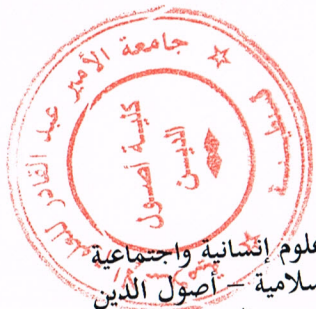 جامعة الأمير عبد القادر للعلوم
قسنطينة
كلية أصول
الدين
علوم إنسانية واجتماعية
إسلامية – أصول الدين